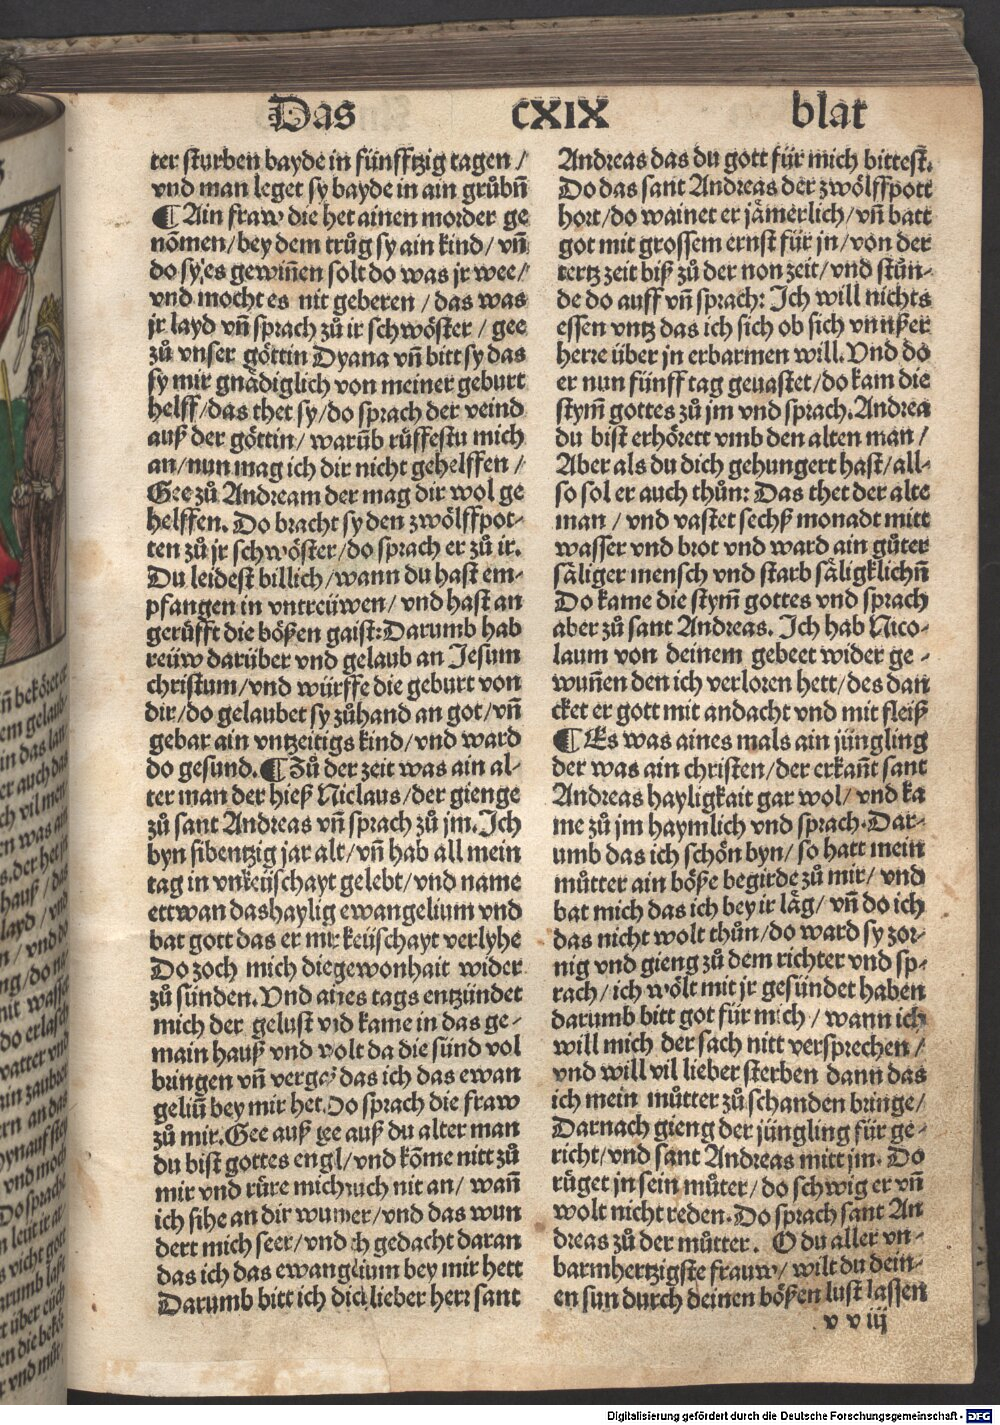 Das CXIX blat
ter sturben bayde in fünfftzig tagen /
vnd man leget sy bayde in ain grůbn̄
¶ Ain fraw die het ainen morder ge
nōmen / bey dem trůg sy ain kind / vn̄
do sy es gewin̄en solt do was jr wee /
vnd mocht es nit geberen / das was
jr layd vn̄ sprach zů ir schwöster / gee
zů vnser göttin Dyana vn̄ bitt sy das
sy mir gnädiglich von meiner geburt
helff / das thet sy / do sprach der veind
auß der göttin / warūb růffestu mich
an / nun mag ich dir nicht gehelffen /
Gee zů Andream der mag dir wol ge
helffen. Do bracht sy den zwölffpot-
ten zů jr schwöster / do sprach er zů ir.
Du leidest billich / wann du hast em-
pfangen in vntreüwen / vnd hast an
gerüfft die bößen gaist: Darumb hab
reüw darüber vnd gelaub an Jesum
christum / vnd würffe die geburt von
dir / do gelaubet sy zůhand an got / vn̄
gebar ain vntzeitigs kind / vnd ward
do gesund. ¶ Zů der zeit was ain al-
ter man der hieß Niclaus / der gienge
zů sant Andreas vn̄ sprach zů jm. Ich
byn sibentzig jar alt / vn̄ hab all mein
tag in vnkeüschayt gelebt / vnd name
ettwan das haylig ewangelium vnd
bat gott das er mir keüschayt verlyhe
Do zoch mich die gewonhait wider
zů sünden. Vnd aines tags entzündet
mich der gelust vnd kame in das ge-
main hauß vnd wolt da die sünd vol
bringen vn̄ vergaß das ich das ewan
geliū bey mir het. Do sprach die fraw
zů mir. Gee auß gee auß du alter man
du bist gottes engl / vnd kōme nitt zů
mir vnd rüre mich nit an / wan̄
ich sihe an dir wunder / vnd das wun
dert mich seer / vnd ich gedacht daran
das ich das ewangelium bey mir hett
Darumb bitt ich dich lieber herr sant
Andreas das du gott für mich bittest.
Do das sant Andreas der zwölffpott
hort / do wainet er jämerlich / vn̄ batt
got mit grossem ernst für jn / von der
tertz zeit biß zů der non zeit / vnd stůn-
de do auff vn̄ sprach: Ich will nichts
essen vntz das ich sich ob sich vnnßer
herre über jn erbarmen will. Vnd do
er nun fünff tag geuastet / do kam die
stym̄ gottes zů jm vnd sprach. Andrea
du bist erhörett vmb den alten man /
Aber als du dich gehungert hast / all-
so sol er auch thůn: Das thet der alte
man / vnd vastet sechß monadt mitt
wasser vnd brot vnd ward ain gůter
säliger mensch vnd starb säligklichn̄
Do kame die stym̄ gottes vnd sprach
aber zů sant Andreas. Ich hab Nico-
laum von deinem gebeet wider ge-
wun̄en den ich verloren hett / des dan
cket er gott mit andacht vnd mit fleiß
¶ Es was aines mals ain jüngling
der was ain christen / der erkan̄t sant
Andreas hayligkait gar wol / vnd ka
me zů jm haymlich vnd sprach. Dar-
umb das ich schön byn / so hatt mein
můtter ain böße begirde zů mir / vnd
bat mich das ich bey ir läg / vn̄ do ich
das nicht wolt thůn / do ward sy zor-
nig vnd gieng zů dem richter vnd sp-
rach / ich wölt mit jr gesündet haben
darumb bitt got für mich / wann ich
will mich der sach nitt versprechen /
vnd will vil lieber sterben dann das
ich mein můtter zů schanden bringe /
Darnach gieng der jüngling für ge-
richt / vnd sant Andreas mitt jm. Do
rüget jn sein můter / do schwig er vn̄
wolt nicht reden. Do sprach sant An
dreas zů der můtter. O du aller vn-
barmhertzigste frauw / wilt du dein-
en sun durch deinen bößen lust lassen
v v iij
Digitalisierung gefördert durch die Deutsche Forschungsgemeinschaft - DFG